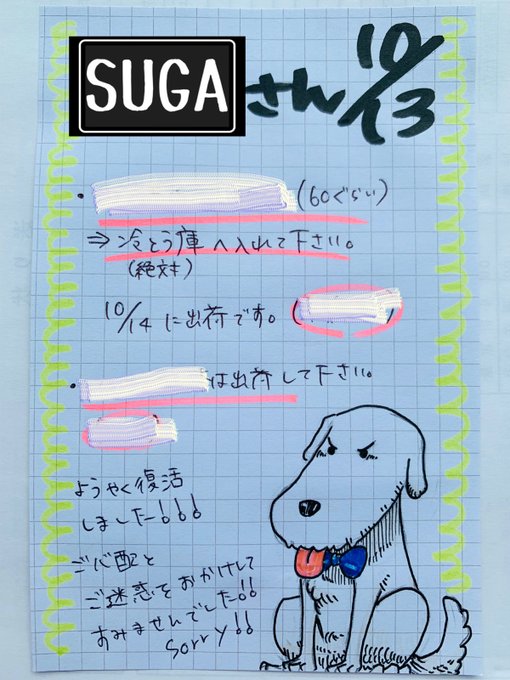 SUGAさん 10/13
・ (60ぐらい)
⇒ 冷とう庫へ入れて下さい。
(絶対!)
10/14 に出荷です。
・ は出荷して下さい。
ようやく復活
しました!!!
ご心配と
ご迷惑をおかけして
すみませんでした!!
sorry!!